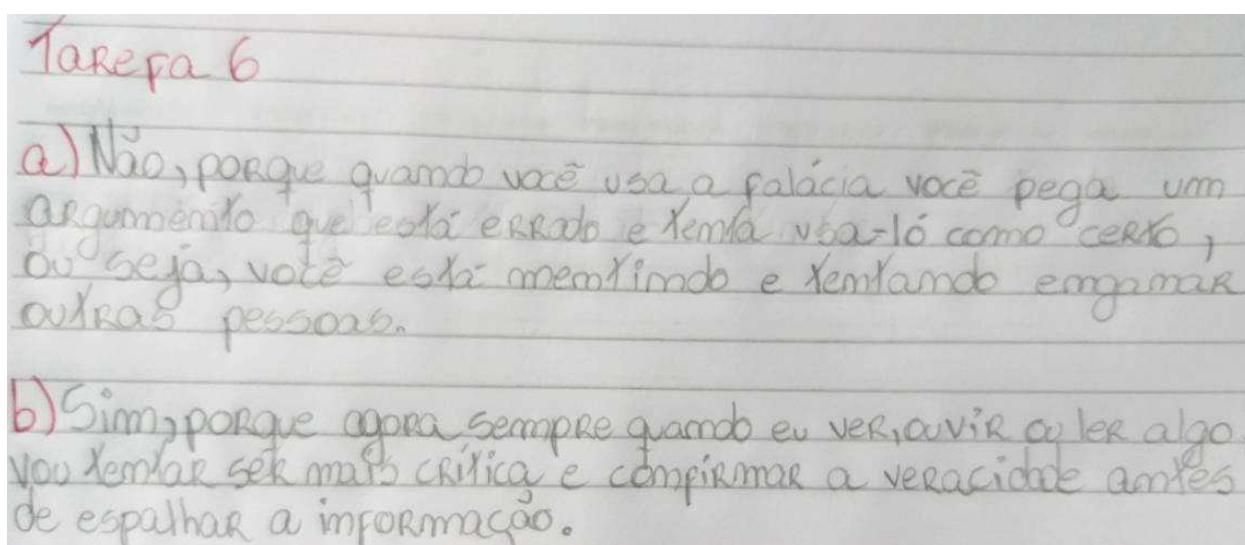 Tarefa 6
a) Não, porque quando você usa a falácia você pega um
argumento que está errado e tenta usa-ló como certo,
ou seja, você está mentindo e tentando enganar
outras pessoas.
b) Sim, porque agora sempre quando eu ver, ouvir ou ler algo
vou tentar ser mais crítica e confirmar a veracidade antes
de espalhar a informação.